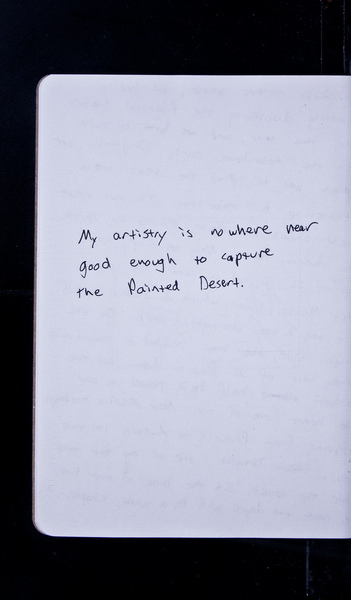 My artistry is nowhere near
good enough to capture
the Painted Desert.